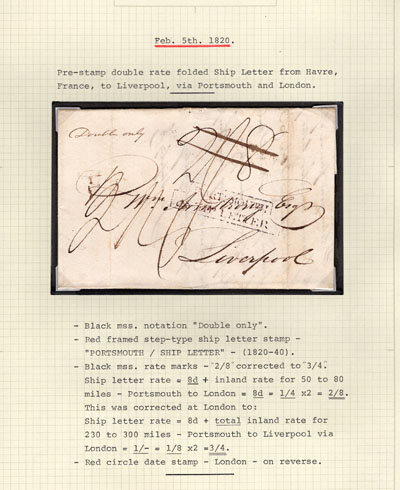 Feb. 5th. 1820.
Pre-stamp double rate folded Ship Letter from Havre,
France, to Liverpool, via Portsmouth and London.
Double only
2/8
Wm
Esqr
SHIP LETTER
Liverpool
- Black mss. notation "Double only".
- Red framed step-type ship letter stamp -
"PORTSMOUTH / SHIP LETTER" - (1820-40).
- Black mss. rate marks - "2/8" corrected to "3/4".
Ship letter rate = 8d + inland rate for 50 to 80
miles - Portsmouth to London = 8d = 1/4 x2 = 2/8.
This was corrected at London to:
Ship letter rate = 8d + total inland rate for
230 to 300 miles - Portsmouth to Liverpool via
London = 1/- = 1/8 x2 =3/4.
- Red circle date stamp - London - on reverse.